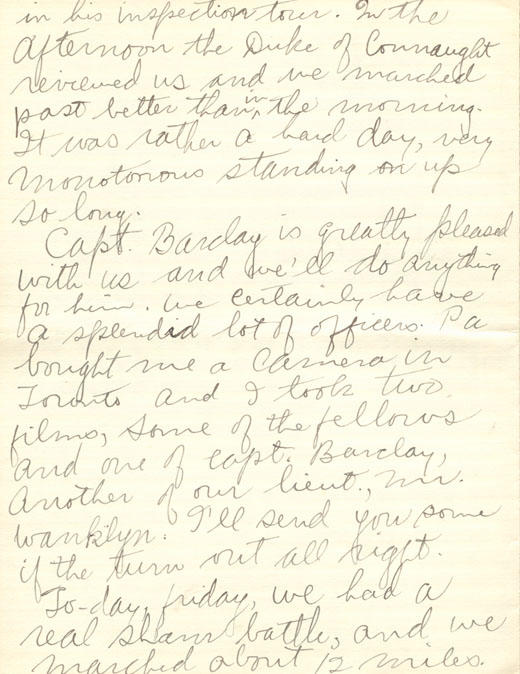 in his inspection tour. In the
afternoon the Duke of Connaught
reviewed us and we marched
past better than in the morning.
It was rather a hard day, very
monotonous standing on up
so long.
Capt. Barclay is greatly pleased
with us and we'll do anything
for him. We certainly have
a splendid lot of officers. Pa
bought me a Camera in
Toronto and I took two
films, some of the fellows
and one of Capt. Barclay,
another of our lieut., Mr.
Wanklyn. I'll send you some
if the turn out all right.
To-day, friday, we had a
real sham battle, and we
marched about 12 miles.